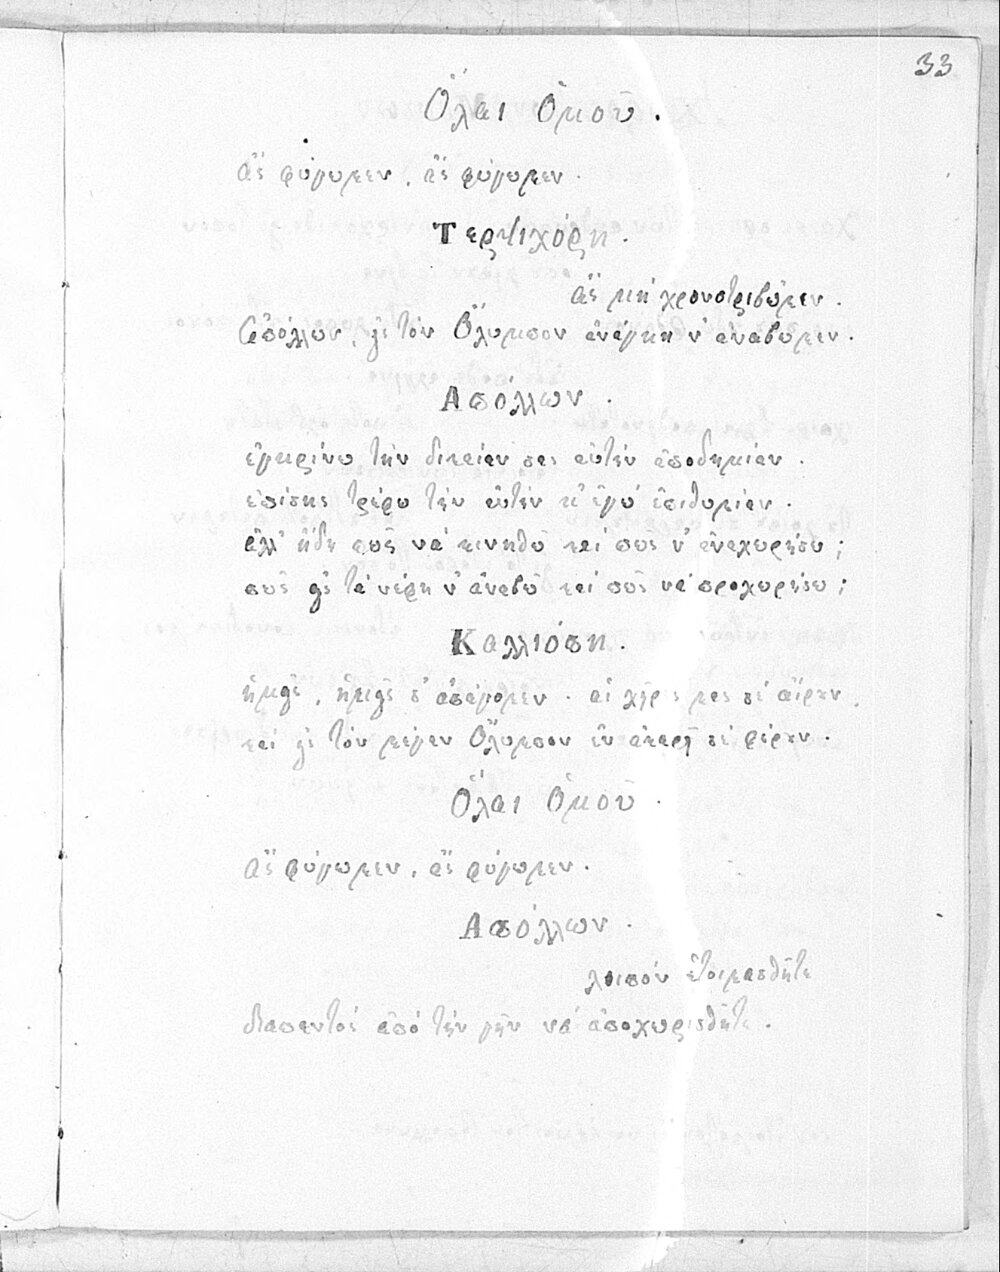 33
Ὅλαι Ὁμοῦ.
ἂς φύγωμεν, ἂς φύγωμεν.
Τερψιχόρη.
ἂς μὴ χρονοτριβῶμεν.
Ἀπόλλων, εἰς τὸν Ὄλυμπον ἀνάγκη ν' ἀναβῶμεν.
Ἀπόλλων.
ἐγκρίνω τὴν δικαίαν σας αὐτὴν ἀποδημίαν.
ἐπίσης τρέφω τὴν αὐτὴν κ' ἐγὼ ἐπιθυμίαν.
ἀλλ' ἤδη πῶς νὰ κινηθῶ καὶ πῶς ν' ἀναχωρήσω;
πῶς εἰς τὰ νέφη ν' ἀναβῶ καὶ πῶς νὰ προχωρήσω;
Καλλιόπη.
ἡμεῖς, ἡμεῖς σ' ἀπάγομεν. αἱ χεῖρές μας σὲ αἴρουν,
καὶ εἰς τὸν μέγαν Ὄλυμπον ἐν ἀκαρεῖ σὲ φέρουν.
Ὅλαι Ὁμοῦ.
ἂς φύγωμεν, ἂς φύγωμεν.
Ἀπόλλων.
λοιπὸν ἑτοιμασθῆτε
διαπαντὸς ἀπὸ τὴν γῆν νὰ ἀποχωρισθῆτε.